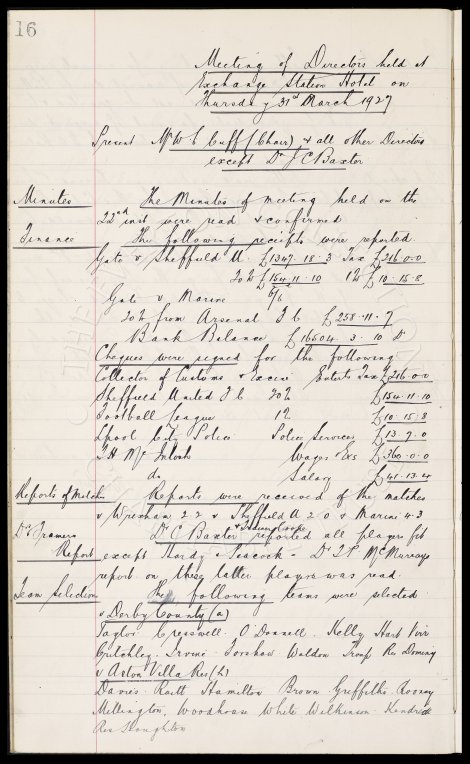 16
Meeting of Directors held at
Exchange Station Hotel on
Thursday 31st March 1927
Present Mr W C Cuff (Chair) & all other Directors
except Dr J C Baxter
Minutes The Minutes of meeting held on the
22nd inst were read & confirmed
Finance The following receipts were reported.
Gate v Sheffield U. £1347.18.3 Tax £216.0.0
20% £154.11.10 1% £10.15.8
Gate v Marine 6/6
20% from Arsenal F.C. £258.11.7
Bank Balance £16504.3.10 D
Cheques were signed for the following
Collector of Customs & Excise Enterts Tax £216.0.0
Sheffield United F C 20% £154.11.10
Football League 1% £10.15.8
Lpool City Police Police Services £13.7.0
T H McIntosh Wages & Exs £360.0.0
do Salary £41.13.4
Reports of Matches Reports were received of the matches
v Wrexham 2.2 v Sheffield U 2.0 v Marine 4.3
Drs Trainers Report Dr C Baxter & Trainer Cooke reported all players fit
except Hardy & Peacock. Dr T P McMurray's
report on these latter players was read.
Team Selection The following teams were selected.
v Derby County (a)
Taylor Cresswell. O'Donnell. Kelly Hart Virr
Critchley. Irvine. Forshaw Weldon Troup Res Dominy
v Aston Villa Res (h)
Davies. Raitt Hamilton Brown Griffiths. Rooney
Millington. Woodhouse White Wilkinson. Kendrick
Res Houghton